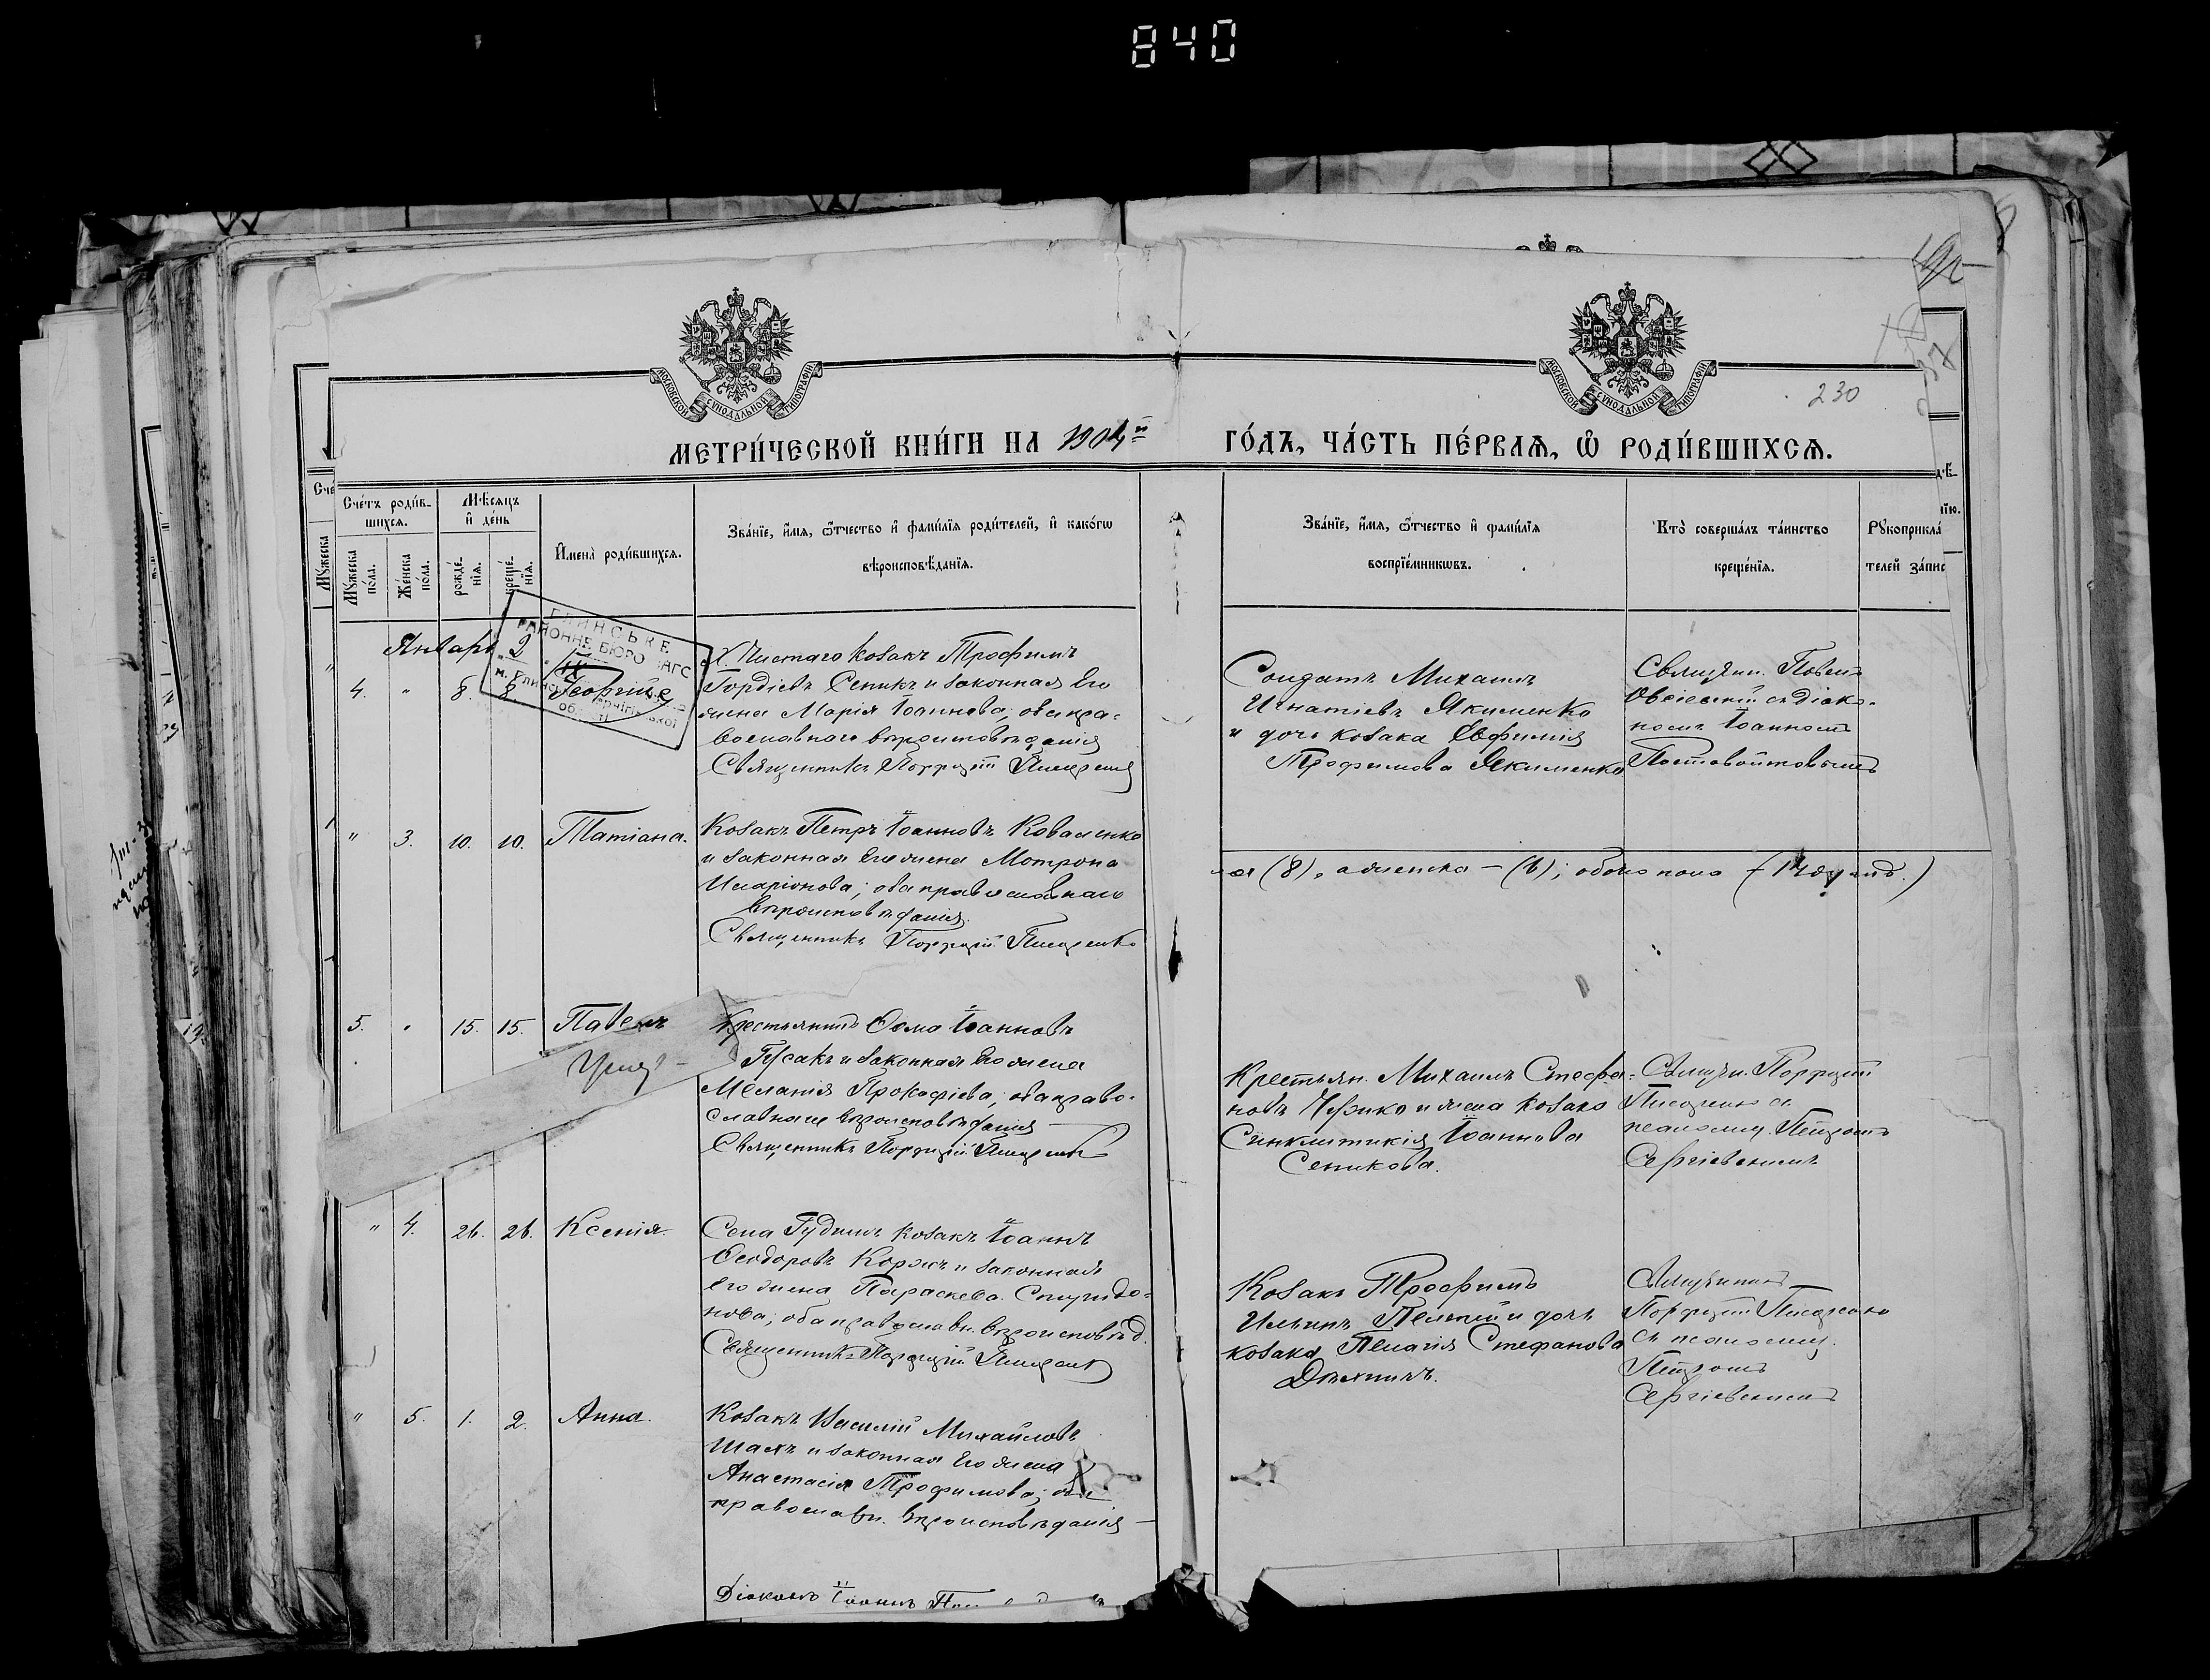 840
МОСКОВСКОЙ СѴНОДАЛЬНОЙ ТИПОГРАФІИ
МОСКОВСКОЙ СѴНОДАЛЬНОЙ ТИПОГРАФІИ
230
МЕТРИ́ЧЕСКОЙ КНИ́ГИ НА 1904й ГО́ДЪ, ЧА́СТЬ ПЕ́РВАѦ, Ѡ҆ РОДИ́ВШИХСѦ.
Сче́тъ роди́в-
шихсѧ.
Мꙋ́жеска по́ла.
Же́нска по́ла.
Мѣ́сѧцъ
и҆ де́нь
рожде́-
нїѧ.
креще́-
нїѧ.
И҆мена̀ роди́вшихсѧ.
Зва́нїе, и҆́мѧ, ѻ҆́тчество и҆ фами́лїѧ роди́телей, и҆ како́гѡ
вѣроисповѣ́данїѧ.
Зва́нїе, и҆́мѧ, ѻ҆́тчество и҆ фами́лїѧ
воспрїе́мникѡвъ.
Кто̀ соверша́лъ та́инство
креще́нїѧ.
Рꙋкоприкла́
телей за́пис
Январь
ГЛИНСЬКЕ
РАЙОННЕ БЮРО ЗАГС
4. " 8. 8. Георгій
Х. Чистаго козакъ Трофимъ
Гордіевъ Сеникъ и законная его
жена Марія Іоаннова; оба пра-
вославнаго вѣроисповѣданія
Священникъ Порфирій
Солдатъ Михаилъ
Игнатіевъ Якименко
и дочь козака Евфимія
Трофимова Якименко
съ діако-
номъ Іоанномъ
" 3. 10. 10. Татіана.
Козакъ Петръ Іоанновъ Коваленко
и законная его жена Мотрона
Иларіонова; оба православнаго
вѣроисповѣданія.
Священникъ Порфирій
(8), а женска – (6); обоего пола (14
5. " 15. 15. Павелъ
Крестьянинъ Ѳома Іоанновъ
Гусакъ и законная его жена
Меланія Прокофіева; оба право-
славнаго вѣроисповѣданія
Священникъ Порфирій
Крестьян. Михаилъ Стефа-
новъ и жена козака
Синклитикія Іоаннова
Сеникова.
Священ. Порфирій
псаломщ. Петромъ
Сергіевскимъ
" 4. 26. 26. Ксенія.
Села Гудимъ козакъ Іоаннъ
Ѳеодоровъ Коржъ и законная
его жена Параскева Спиридо-
нова; оба православн. вѣроисповѣд.
Священникъ Порфирій
Козакъ Трофимъ
Ильинъ и дочь
козака Пелагія Стефанова
Священникъ
Порфирій
съ псаломщ.
Петромъ
Сергіевскимъ
" 5. 1. 2. Анна.
Козакъ Василій Михайловъ
Шахъ и законная его жена
Анастасія Трофимова; оба
православн. вѣроисповѣданія
Діаконъ Іоаннъ